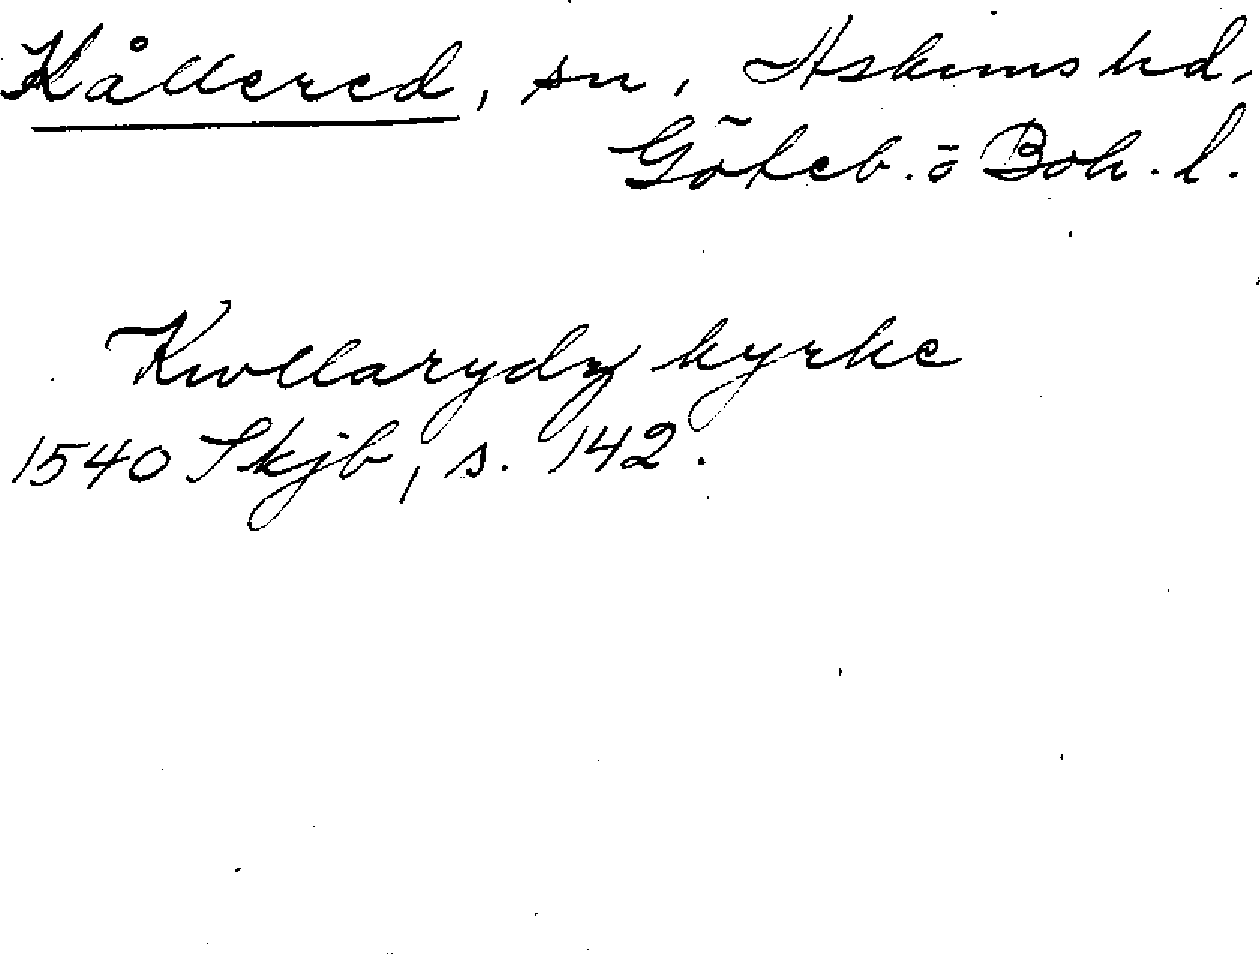 Kållered, sn, Askims hd,
Göteb. o Boh. l.
Kwllarydz kyrke
1540 Skjb, s. 142.